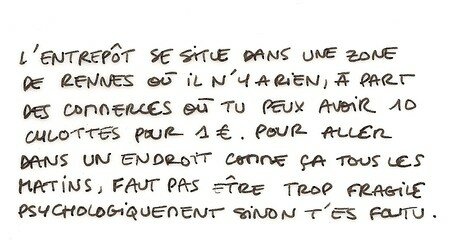 L'ENTREPÔT SE SITUE DANS UNE ZONE
DE RENNES OÙ IL N'Y A RIEN, À PART
DES COMMERCES OÙ TU PEUX AVOIR 10
CULOTTES POUR 1 €. POUR ALLER
DANS UN ENDROIT COMME ÇA TOUS LES
MATINS, FAUT PAS ÊTRE TROP FRAGILE
PSYCHOLOGIQUEMENT SINON T'ES FOUTU.